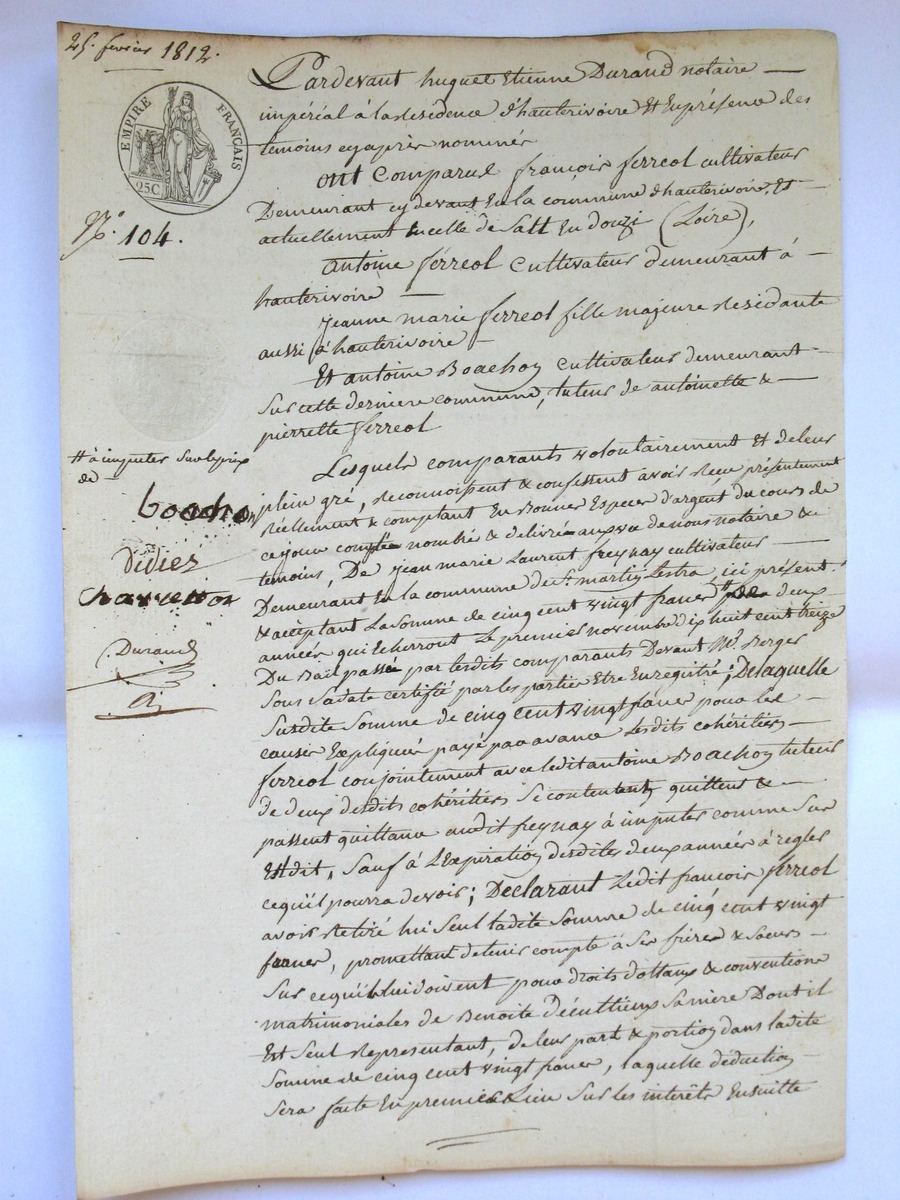 25. fevrier 1812.
EMPIRE FRANÇAIS
25C
N.° 104.
Pardevant huguet Etienne Durand notaire
impérial à la residence d'hauterivoire et en présence des
temoins cy après nommés
ont comparus françois ferreol cultivateur
Demeurant cy devant en la commune d'hauterivoire, et
actuellement en celle de Salt en donzi (Loire),
antoine ferreol cultivateur demeurant à
hauterivoire
jeanne marie ferreol fille majeure residante
aussi à hauterivoire
Et antoine Boachon cultivateur demeurant
sur cette derniere commune, tuteur de antoinette &
pierrette ferreol
Lesquels comparants volontairement et de leur
plein gré, reconnoissent & confessent avoir reçu présentement
réellement & comptant en bonnes especes d'argent du cours de
ce jour comptée nombré & délivrée au vu de nous notaire &
temoins, De jean marie Laurent freynay cultivateur
Demeurant en la commune de St. martin Lestra, ici présent
& acceptant La somme de cinq cent vingt francs # deux
années qui echerront Le premier novembre dix huit cent treize
Du Bail passé par lesdits comparants Devant Me. Berger
sous sa date certifié par les parties Etre Enregistré; De laquelle
susdite somme de cinq cent vingt francs pour les
causes expliquées payé par avance Lesdits cohéritiers
ferreol conjointement avec ledit antoine Boachon tuteur
de deux desdits cohéritiers se contentent, quittent &
passent quittance audit freynay à imputer comme sur
Est dit, sauf à L'expiration desdites deux années à regler
ce qu'il pourra devoir; Déclarant Ledit françois ferreol
avoir retiré lui seul ladite somme de cinq cent vingt
francs, promettant de tenir compte à ses frères & soeurs
sur ce qu'ils lui doivent pour droits dottaux & conventions
matrimoniales de Benoite Décultieux sa mère Dont il
Est seul représentant, de leur part & portion dans ladite
somme de cinq cent vingt francs, laquelle déduction
sera faite en premier Lieu sur les intérêts Ensuitte
# à imputer sur le prix
de
boachon
Didier
Durand